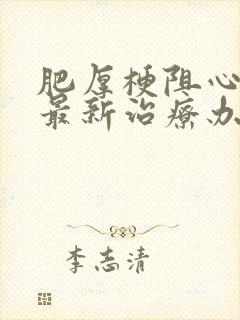 肥厚梗阻心
最新治疗办
李志清